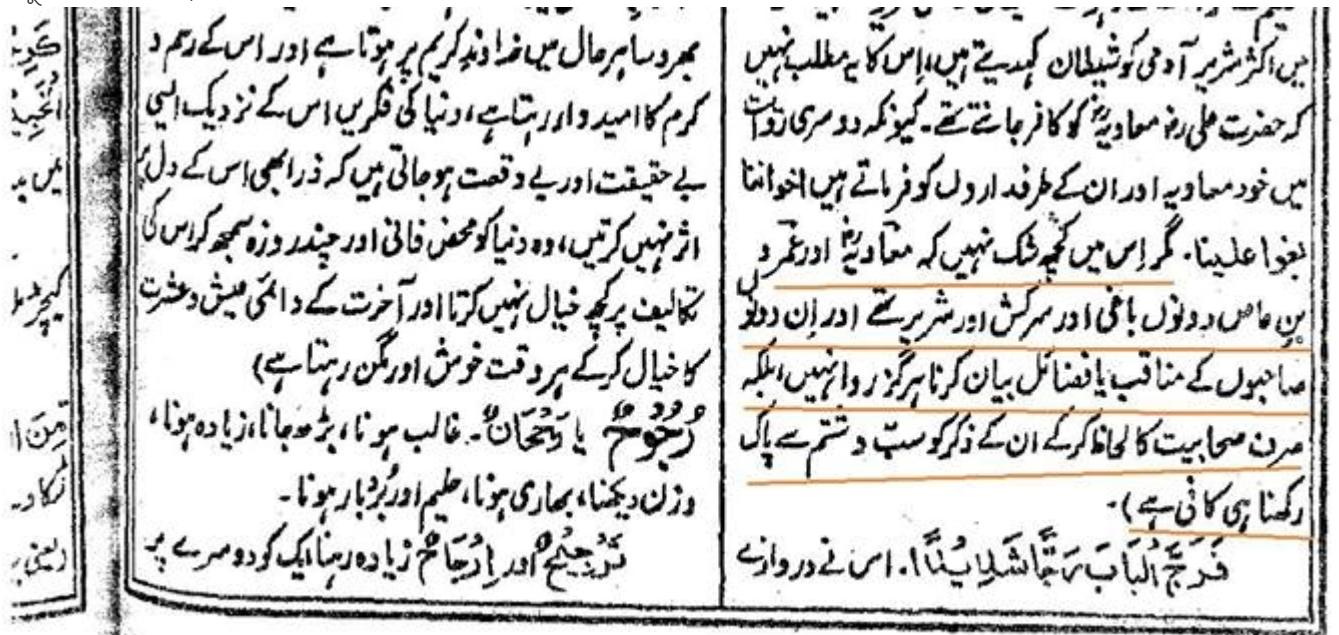 میں اکثر شریر آدمی کو شیطان کہدیتے ہیں، اِس کا یہ مطلب نہیں
کہ حضرت علی رضہ معاویہؓ کو کافر جانتے تھے۔ کیونکہ دوسری روایت
میں خود معاویہ اور ان کے طرفداروں کو فرماتے ہیں اخواننا
بغوا علینا۔ مگر اِس میں کچھ شک نہیں کہ معاویہؓ اور عمرو
بن عاص دونوں باغی اور سرکش اور شریر تھے اور اِن دونوں
صاحبوں کے مناقب یا فضائل بیان کرنا ہرگز روا نہیں بلکہ
صرف صحابیت کا لحاظ کرکے ان کے ذکر کو سبّ و شتم سے پاک
رکھنا ہی کافی ہے)۔
فَرَجَّ الْبَابَ رَجًّا شَدِيْدًا۔ اس نے دروازے
بھروسا ہر حال میں خداوند کریم پر ہوتا ہے اور اس کے رحم و
کرم کا امیدوار رہتا ہے، دنیا کی فکریں اس کے نزدیک ایسی
بے حقیقت اور بے وقعت ہوجاتی ہیں کہ ذرا بھی اس کے دل پر
اثر نہیں کرتیں، وہ دنیا کو محض فانی اور چند روزہ سمجھ کر اس کی
تکالیف پر کچھ خیال نہیں کرتا اور آخرت کے دائمی عیش و عشرت
کا خیال کرکے ہر وقت خوش اور مگن رہتا ہے)
رُجُوْحٌ یا رَجْحَانٌ۔ غالب ہونا، بڑھ جانا، زیادہ ہونا،
وزن دیکھنا، بھاری ہونا، حلیم اور بُردبار ہونا۔
تَرْجِيْحٌ اور اِرْجَاحٌ زیادہ رہنا ایک کو دوسرے پر